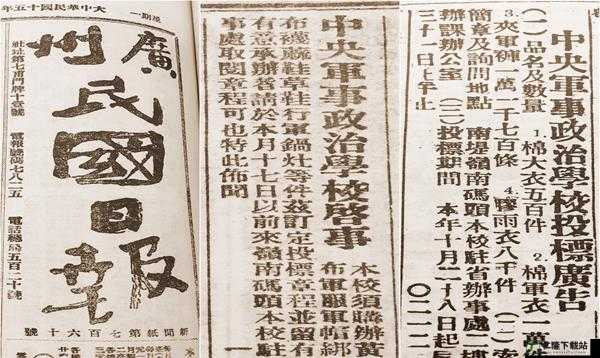 大中華民國十五年
廣州民國日報
社址第七甫門牌十壹號 電報號碼七八二五 電話總局五百二十號
新聞紙第七百六十號
中央軍事政治學校啓事
本校須購辦黃
布軍服軍帽綁
布襪氈鞋草鞋行軍鍋灶等件茲訂定投標章程並留有
有意承辦者請於本月十七日以前來嶺南碼頭本校駐
事處取閱章程可也特此佈聞
中央軍事政治學校投標廣告
（一）品名及數量 1.棉大衣五百件 2.棉軍衣
3.夾軍褲一萬二千七百條 4.膠雨衣八千件 （二）
簡章及詢問地點 南堤嶺南碼頭本校駐省辦事處二
辦課辦公室 （三）投標期間 本年十月二十八日起
三十一日上午止
下载站